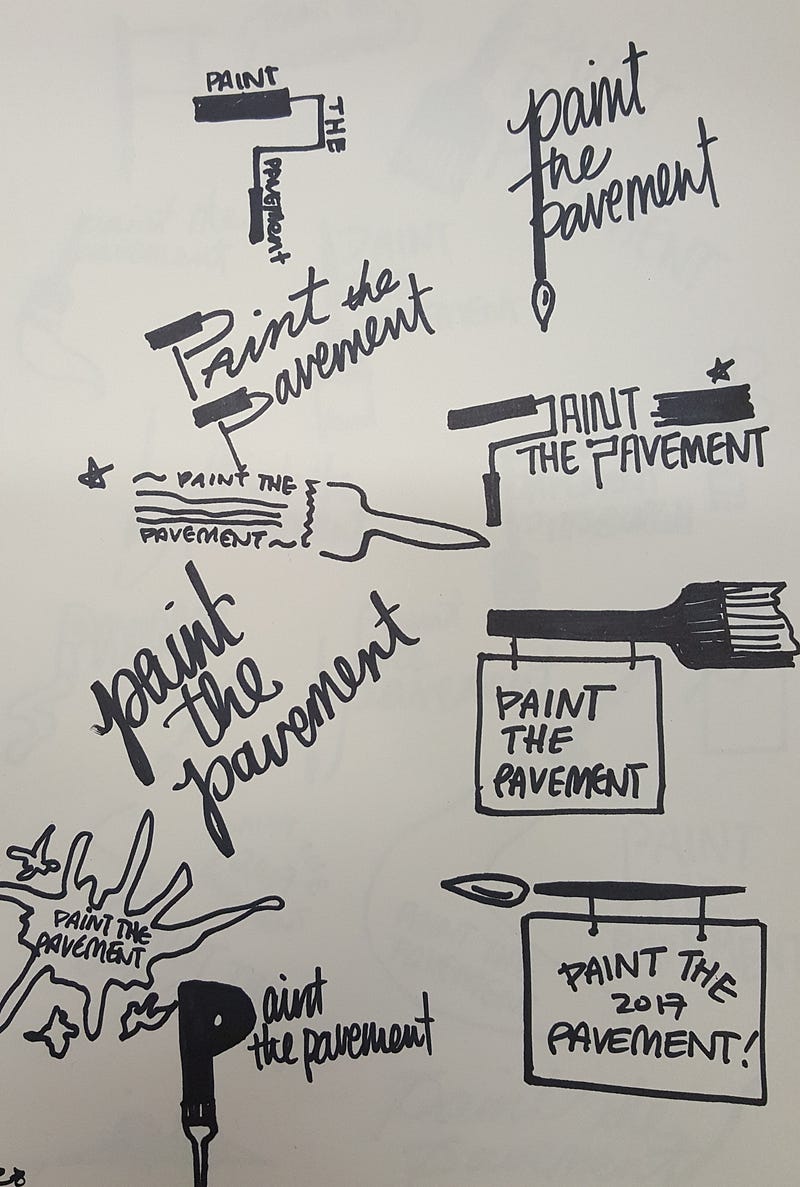 PAINT
THE
PAVEMENT
paint
the
pavement
Paint the
Pavement
PAINT
THE PAVEMENT
PAINT THE
PAVEMENT
paint
the
pavement
PAINT
THE
PAVEMENT
PAINT THE
PAVEMENT
Paint
the pavement
PAINT THE
2017
PAVEMENT!